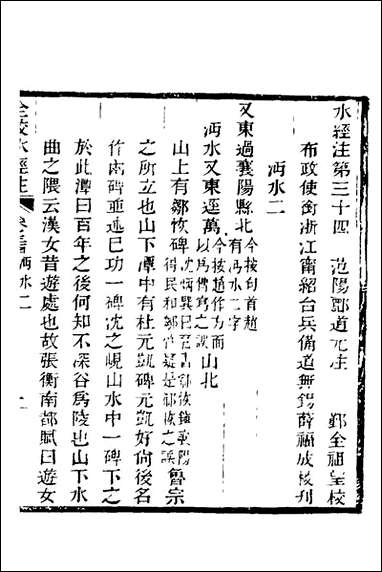 水經注第三十四　范陽酈道元注　鄞全祖望校
布政使銜浙江甯紹台兵備道無錫薛福成校刊
沔水二
又東過襄陽縣北今按句首趙有沔水二字
沔水又東逕萬今按趙作方而以爲傳寫之誤山北
山上有鄒恢碑魯宗
之所立也山下潭中有杜元凱碑元凱好尙後名
作兩碑重述己功一碑沈之峴山水中一碑下之
於此潭曰百年之後何知不深谷爲陵也山下水
曲之隈云漢女昔遊處也故張衡南都賦曰遊女
全校水經注　沔水二　一